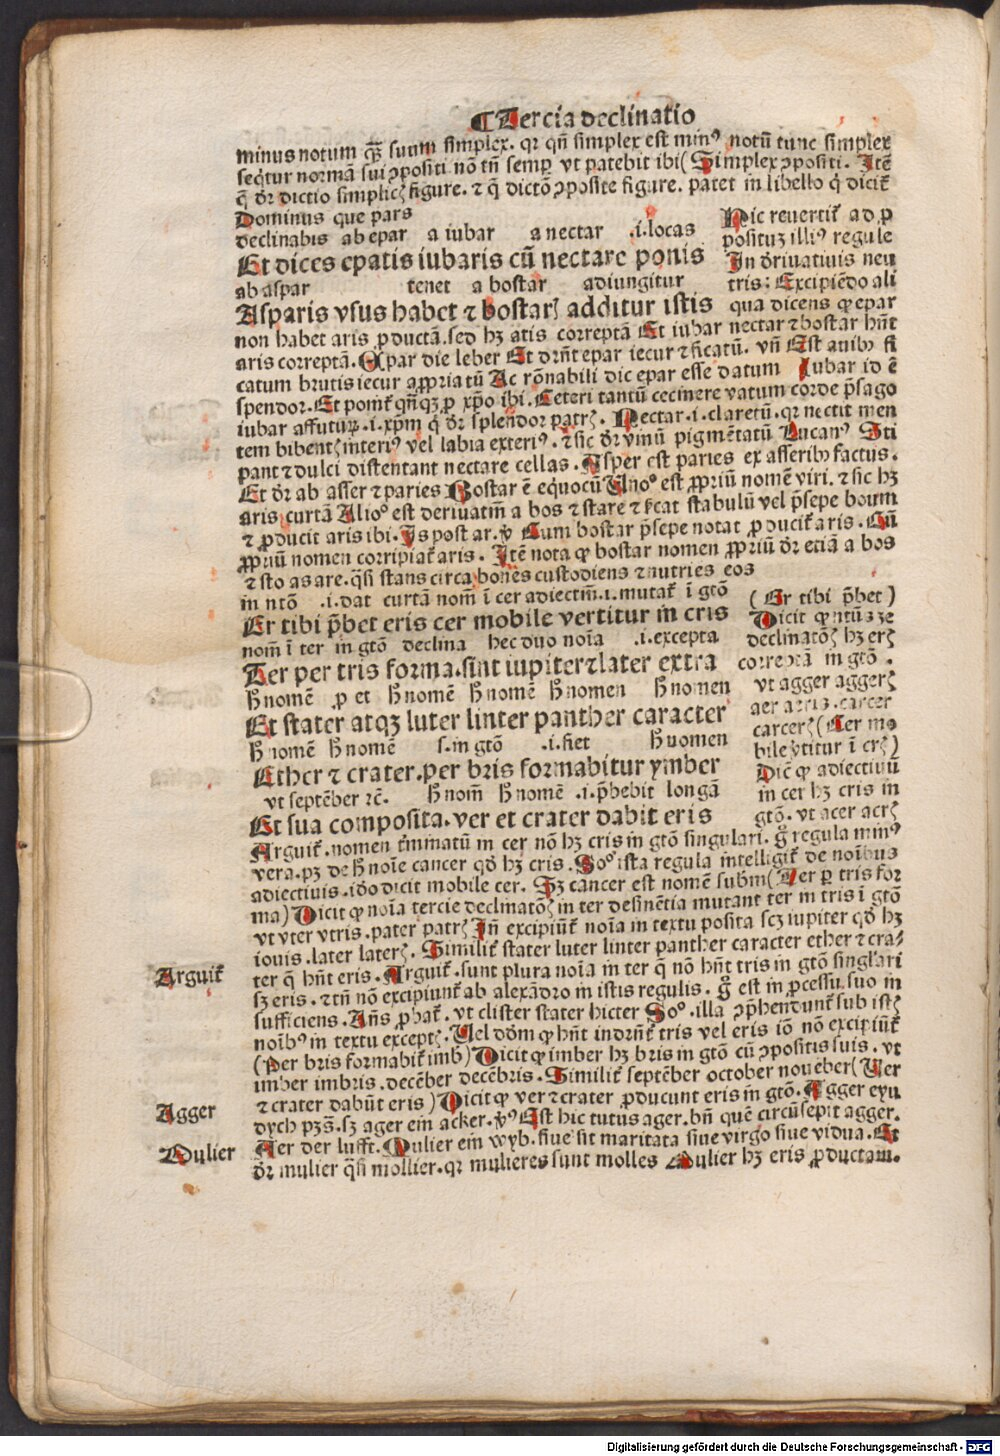 ¶Tercia declinatio
minus notum qȝ̃ suum simplex. qr qñ simplex est minꝰ notũ tunc simplex
seqͥtur normã sui ꝯpositi nõ tñ semꝑ vt patebit ibi (Simplex ꝯpositi. Itẽ
q̃ dr̃ dictio simplicꝭ figure. ⁊ q̃ dictõ ꝯposite figure. patet in libello q̇ dicit̃
Dominus que pars
declinabis ab epar a iubar a nectar .i. locas
Et dices epatis iubaris cũ nectare ponis
ab aspar tenet a bostar adiungitur
Asparis vsus habet ⁊ bostarꝭ additur istis
Hic reuertit̃ ad ꝓ
posituȝ illiꝰ regule
In dr̃iuatiuis neu
tris: Excipiẽdo ali
qua dicens ꝙ epar
non habet aris ꝓductã. sed hȝ atis correptã Et iubar nectar ⁊ bostar hñt
aris correptã. Epar die leber Et drñt epar iecur ⁊ ficatũ. vñ Est auibꝰ fi
catum brutis iecur aꝓpria tũ Ac rõnabili dic epar esse datum Iubar id ẽ
spendor. Et pomit̃ qñqȝ ꝓ xp̃o ibi. Ceteri tantũ cecinere vatum corde p̃sago
iubar affuturꝝ .i. xp̃m q̇ dr̃ splendor patrꝭ. Nectar .i. claretũ. qr nectit men
tem bibentꝭ interiꝰ vel labia exteriꝰ. ⁊ sic dr̃ vinũ pigmẽtatũ Lucanꝰ Sti
pant ⁊ dulci distentant nectare cellas. Asper est paries ex asseribꝰ factus.
Et dr̃ ab asser ⁊ paries Bostar ẽ eqͥuocũ Vnoº est ꝓpriũ nomẽ viri. ⁊ sic hȝ
aris curtã Alioº est deriuatiũ a bos ⁊ stare ⁊ sic̃at stabulũ vel p̃sepe boum
⁊ ꝓducit aris ibi. Is post ar. ꝟ Cum bostar p̃sepe notat ꝓducit̃ aris. Cũ
ꝓpriũ nomen corripiat̃ aris. Itẽ nota ꝙ bostar nomen ꝓpriũ dr̃ etiã a bos
⁊ sto as are. qͥsi stans circa boues custodiens ⁊ nutries eos
in ntõ .i. dat curtã nom̃ ĩ cer adiectiũ .i. mutat̃ ĩ gtõ
Er tibi p̃bet eris cer mobile vertitur in cris
nom̃ ĩ ter in gtõ declina hec duo noĩa .i. excepta
Ter per tris forma. sint iupiter ⁊ later extra
ħ nomẽ ꝓ et ħ nomẽ ħ nomẽ ħ nomen ħ nomen
Et stater atqȝ luter linter panther caracter
ħ nomẽ ħ nomẽ s. in gtõ .i. fiet ħ nomen
Ether ⁊ crater. per bris formabitur ymber
vt septẽber ⁊c̃. ħ nom̃ ħ nomẽ .i. p̃hebit longã
Et sua composita. ver et crater dabit eris
(Er tibi p̃bet)
Dicit ꝙ ntũ ȝe
declinatõꝭ hȝ erꝭ
correptã in gtõ.
vt agger aggerꝭ
aer aeris. carcer
carcerꝭ (Cer mo
bile v̓titur ĩ crꝭ)
Diẽ ꝙ adiectiuũ
in cer hȝ cris in
gtõ. vt acer acrꝭ
Arguit̃. nomen t̃minatũ in cer nõ hȝ cris in gtõ singulari. g̊ regula minꝰ
vera. pȝ de ħ noĩe cancer qď hȝ cris. Soº ista regula intelligit̃ de noĩbus
adiectiuis. iďo dicit mobile cer. Sȝ cancer est nomẽ subm̃ (Ter ꝑ tris for
ma) Dicit ꝙ noĩa tercie declinatõꝭ in ter desinẽtia mutant ter in tris ĩ gtõ
vt vter vtris. pater patrꝭ Iñ excipiũt̃ noĩa in textu posita scȝ iupiter qď hȝ
iouis. later laterꝭ. Similit̃ stater luter linter panther caracter ether ⁊ cra⸗
ter q̃ hñt eris. Arguit̃. sunt plura noĩa in ter q̃ nõ hñt tris in gtõ singl̃ari
sȝ eris. ⁊ tñ nõ excipiunt̃ ab alexãdro in istis regulis. g̊ est in ꝓcessu suo in
sufficiens. Añs ꝓbat̃. vt clister stater hicter Soº. illa ꝯp̃hendunt̃ sub istꝭ
noĩbꝰ in textu exceptꝭ. Uel dõm ꝙ hñt indrñt̃ tris vel eris iõ nõ excipiũt̃
(Per bris formabit̃ imb) Dicit ꝙ imber hȝ bris in gtõ cũ ꝯpositis suis. vt
imber imbris. decẽber decẽbris. Similit̃ septẽber october nouẽber (Uer
⁊ crater dabũt eris) Dicit ꝙ ver ⁊ crater ꝓducunt eris in gtõ. Agger eyn
dych pȝs̃. sȝ ager ein acker. ꝟꝰ Est hic tutus ager. bñ quẽ circũsepit agger.
Aer der lufft. Mulier ein wyb. siue sit maritata siue virgo siue vidua. Et
dr̃ mulier qͥsi mollier. qr mulieres sunt molles Mulier hȝ eris ꝓductam.
Arguit̃
Agger
Mulier
Digitalisierung gefördert durch die Deutsche Forschungsgemeinschaft - DFG